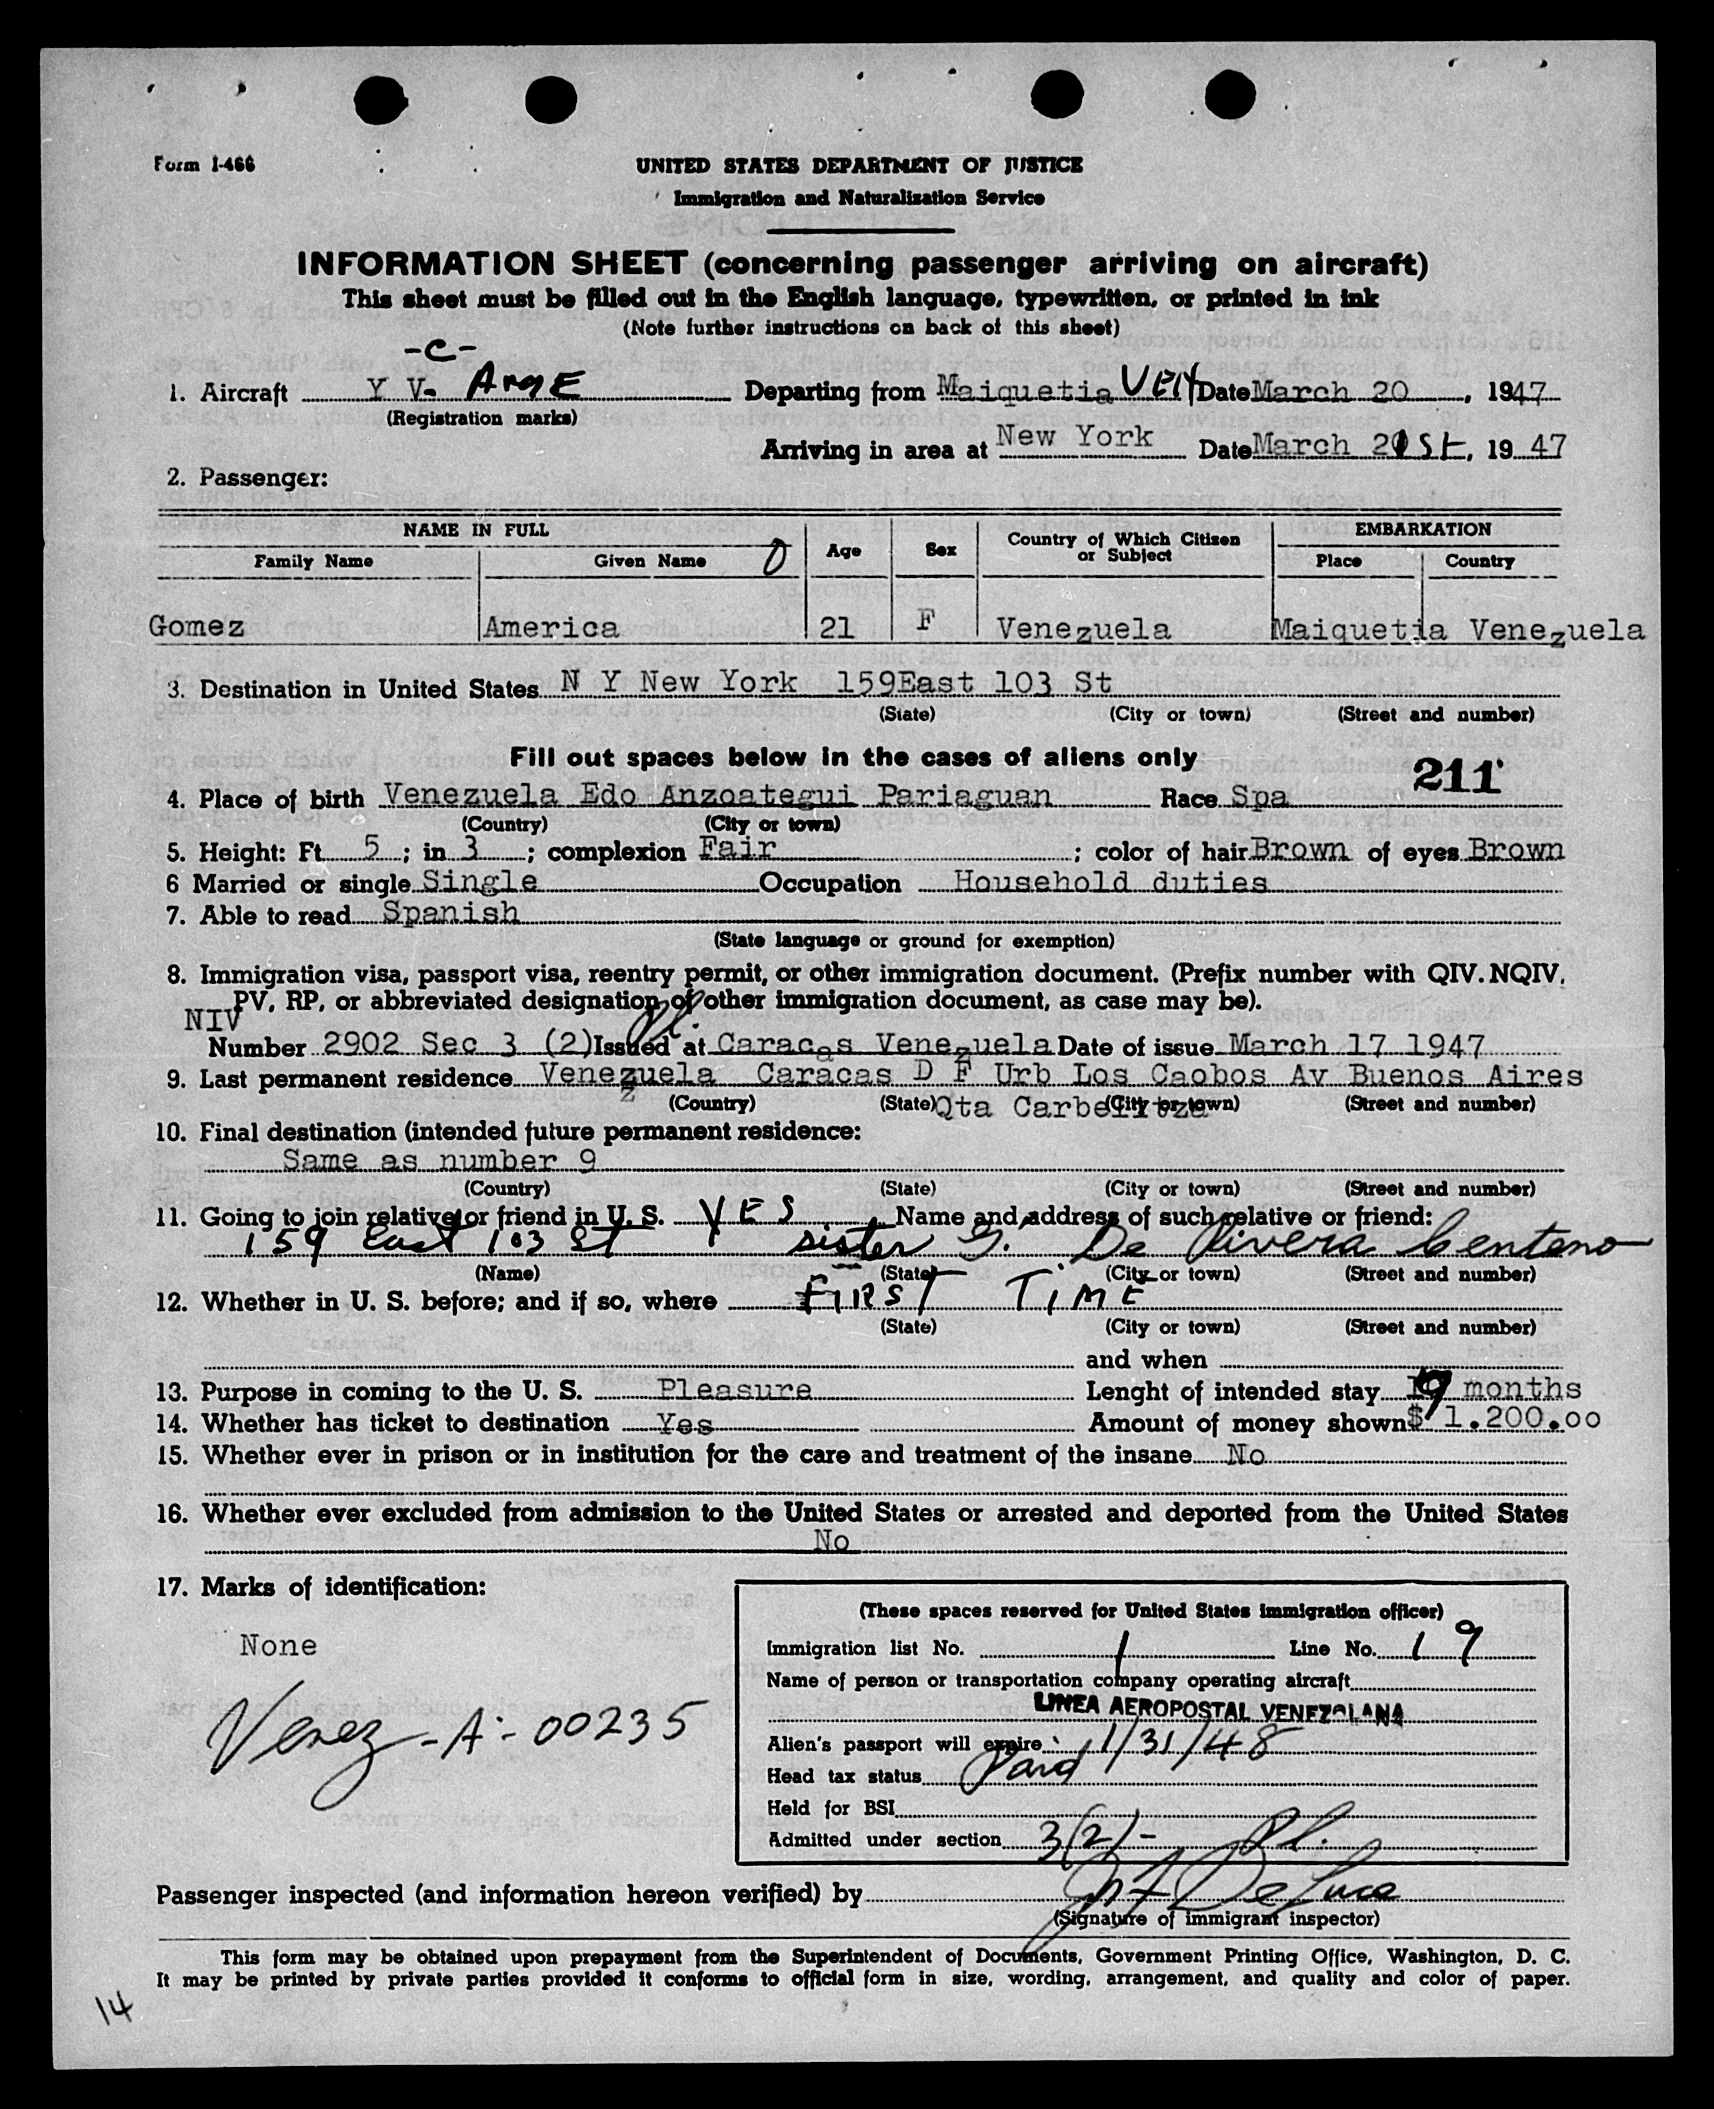 Form I-466
UNITED STATES DEPARTMENT OF JUSTICE
Immigration and Naturalization Service
INFORMATION SHEET (concerning passenger arriving on aircraft)
This sheet must be filled out in the English language, typewritten, or printed in ink
(Note further instructions on back of this sheet)
-C-
1. Aircraft Y V- AME Departing from Maiquetia VEN Date March 20, 1947
(Registration marks)
Arriving in area at New York Date March 21st, 19 47
2. Passenger:
NAME IN FULL Age Sex Country of Which Citizen or Subject EMBARKATION
Family Name Given Name Place Country
Gomez America 21 F Venezuela Maiquetia Venezuela
3. Destination in United States N Y New York 159East 103 St
(State) (City or town) (Street and number)
Fill out spaces below in the cases of aliens only
211
4. Place of birth Venezuela Edo Anzoategui Pariaguan Race Spa
(Country) (City or town)
5. Height: Ft. 5; in 3; complexion Fair; color of hair Brown of eyes Brown
6 Married or single Single Occupation Household duties
7. Able to read Spanish
(State language or ground for exemption)
8. Immigration visa, passport visa, reentry permit, or other immigration document. (Prefix number with QIV. NQIV,
PV, RP, or abbreviated designation of other immigration document, as case may be).
NIV Pl.
Number 2902 Sec 3 (2) Issued at Caracas Venezuela Date of issue March 17 1947
9. Last permanent residence Venezuela Caracas D F Urb Los Caobos Av Buenos Aires
(Country) (State) Qta (City or town) (Street and number)
10. Final destination (intended future permanent residence:
Same as number 9
(Country) (State) (City or town) (Street and number)
11. Going to join relative or friend in U. S. YES Name and address of such relative or friend:
159 East 103 St sister G. De Rivera Centeno
(Name) (State) (City or town) (Street and number)
12. Whether in U. S. before; and if so, where FIRST TIME
(State) (City or town) (Street and number)
and when
13. Purpose in coming to the U. S. Pleasure Lenght of intended stay 9 months
14. Whether has ticket to destination Yes Amount of money shown $ 1.200.00
15. Whether ever in prison or in institution for the care and treatment of the insane No
16. Whether ever excluded from admission to the United States or arrested and deported from the United States
No
17. Marks of identification:
None
Venez-A-00235
(These spaces reserved for United States immigration officer)
Immigration list No. 1 Line No. 19
Name of person or transportation company operating aircraft
LINEA AEROPOSTAL VENEZOLANA
Alien's passport will expire 1/31/48
Head tax status Paid
Held for BSI
Admitted under section 3(2)- Pl.
Passenger inspected (and information hereon verified) by De Luca
(Signature of immigrant inspector)
This form may be obtained upon prepayment from the Superintendent of Documents, Government Printing Office, Washington, D. C.
It may be printed by private parties provided it conforms to official form in size, wording, arrangement, and quality and color of paper.
14